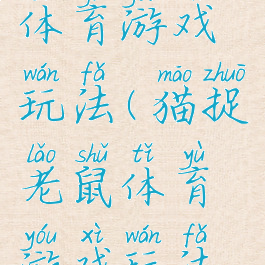 体育游戏
wán fǎ māo zhuō
玩法(猫捉
lǎo shǔ tǐ yù
老鼠体育
yóu xì wán fǎ
游戏玩法